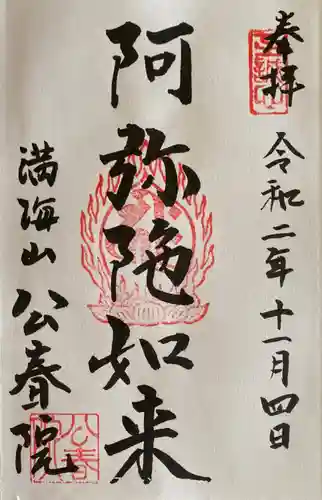 奉拝
令和二年十一月四日
阿弥陀如来
満海山
公春院